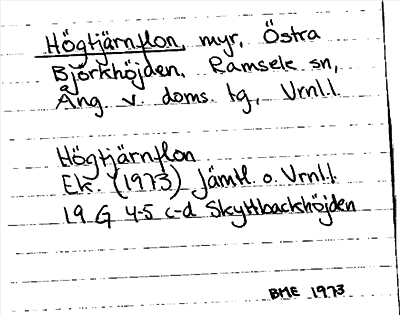 Högtjärnflon, myr, Östra
Björkhöjden, Ramsele sn,
Ång. v. doms. tg, Vrnl.l.
Högtjärnflon
Ek. (1973) Jämtl. o. Vrnl.l.
19 G 4-5 c-d Skyttbackhöjden
BME 1973